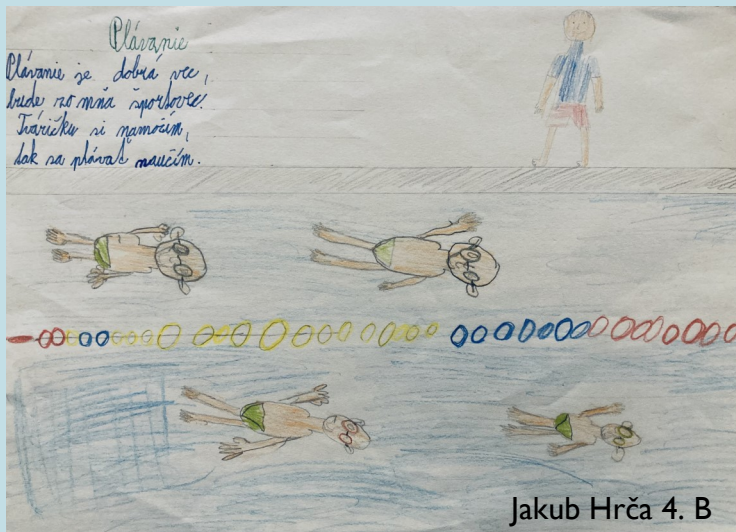 Plávanie
Plávanie je dobrá vec,
bude zo mňa športovec.
Tváričku si namočím,
tak sa plávať naučím.
Jakub Hrča 4. B